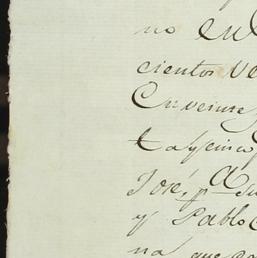 no en
cientos ve
En veinte
ta y cinco
José, p.a
y Pablo
na que